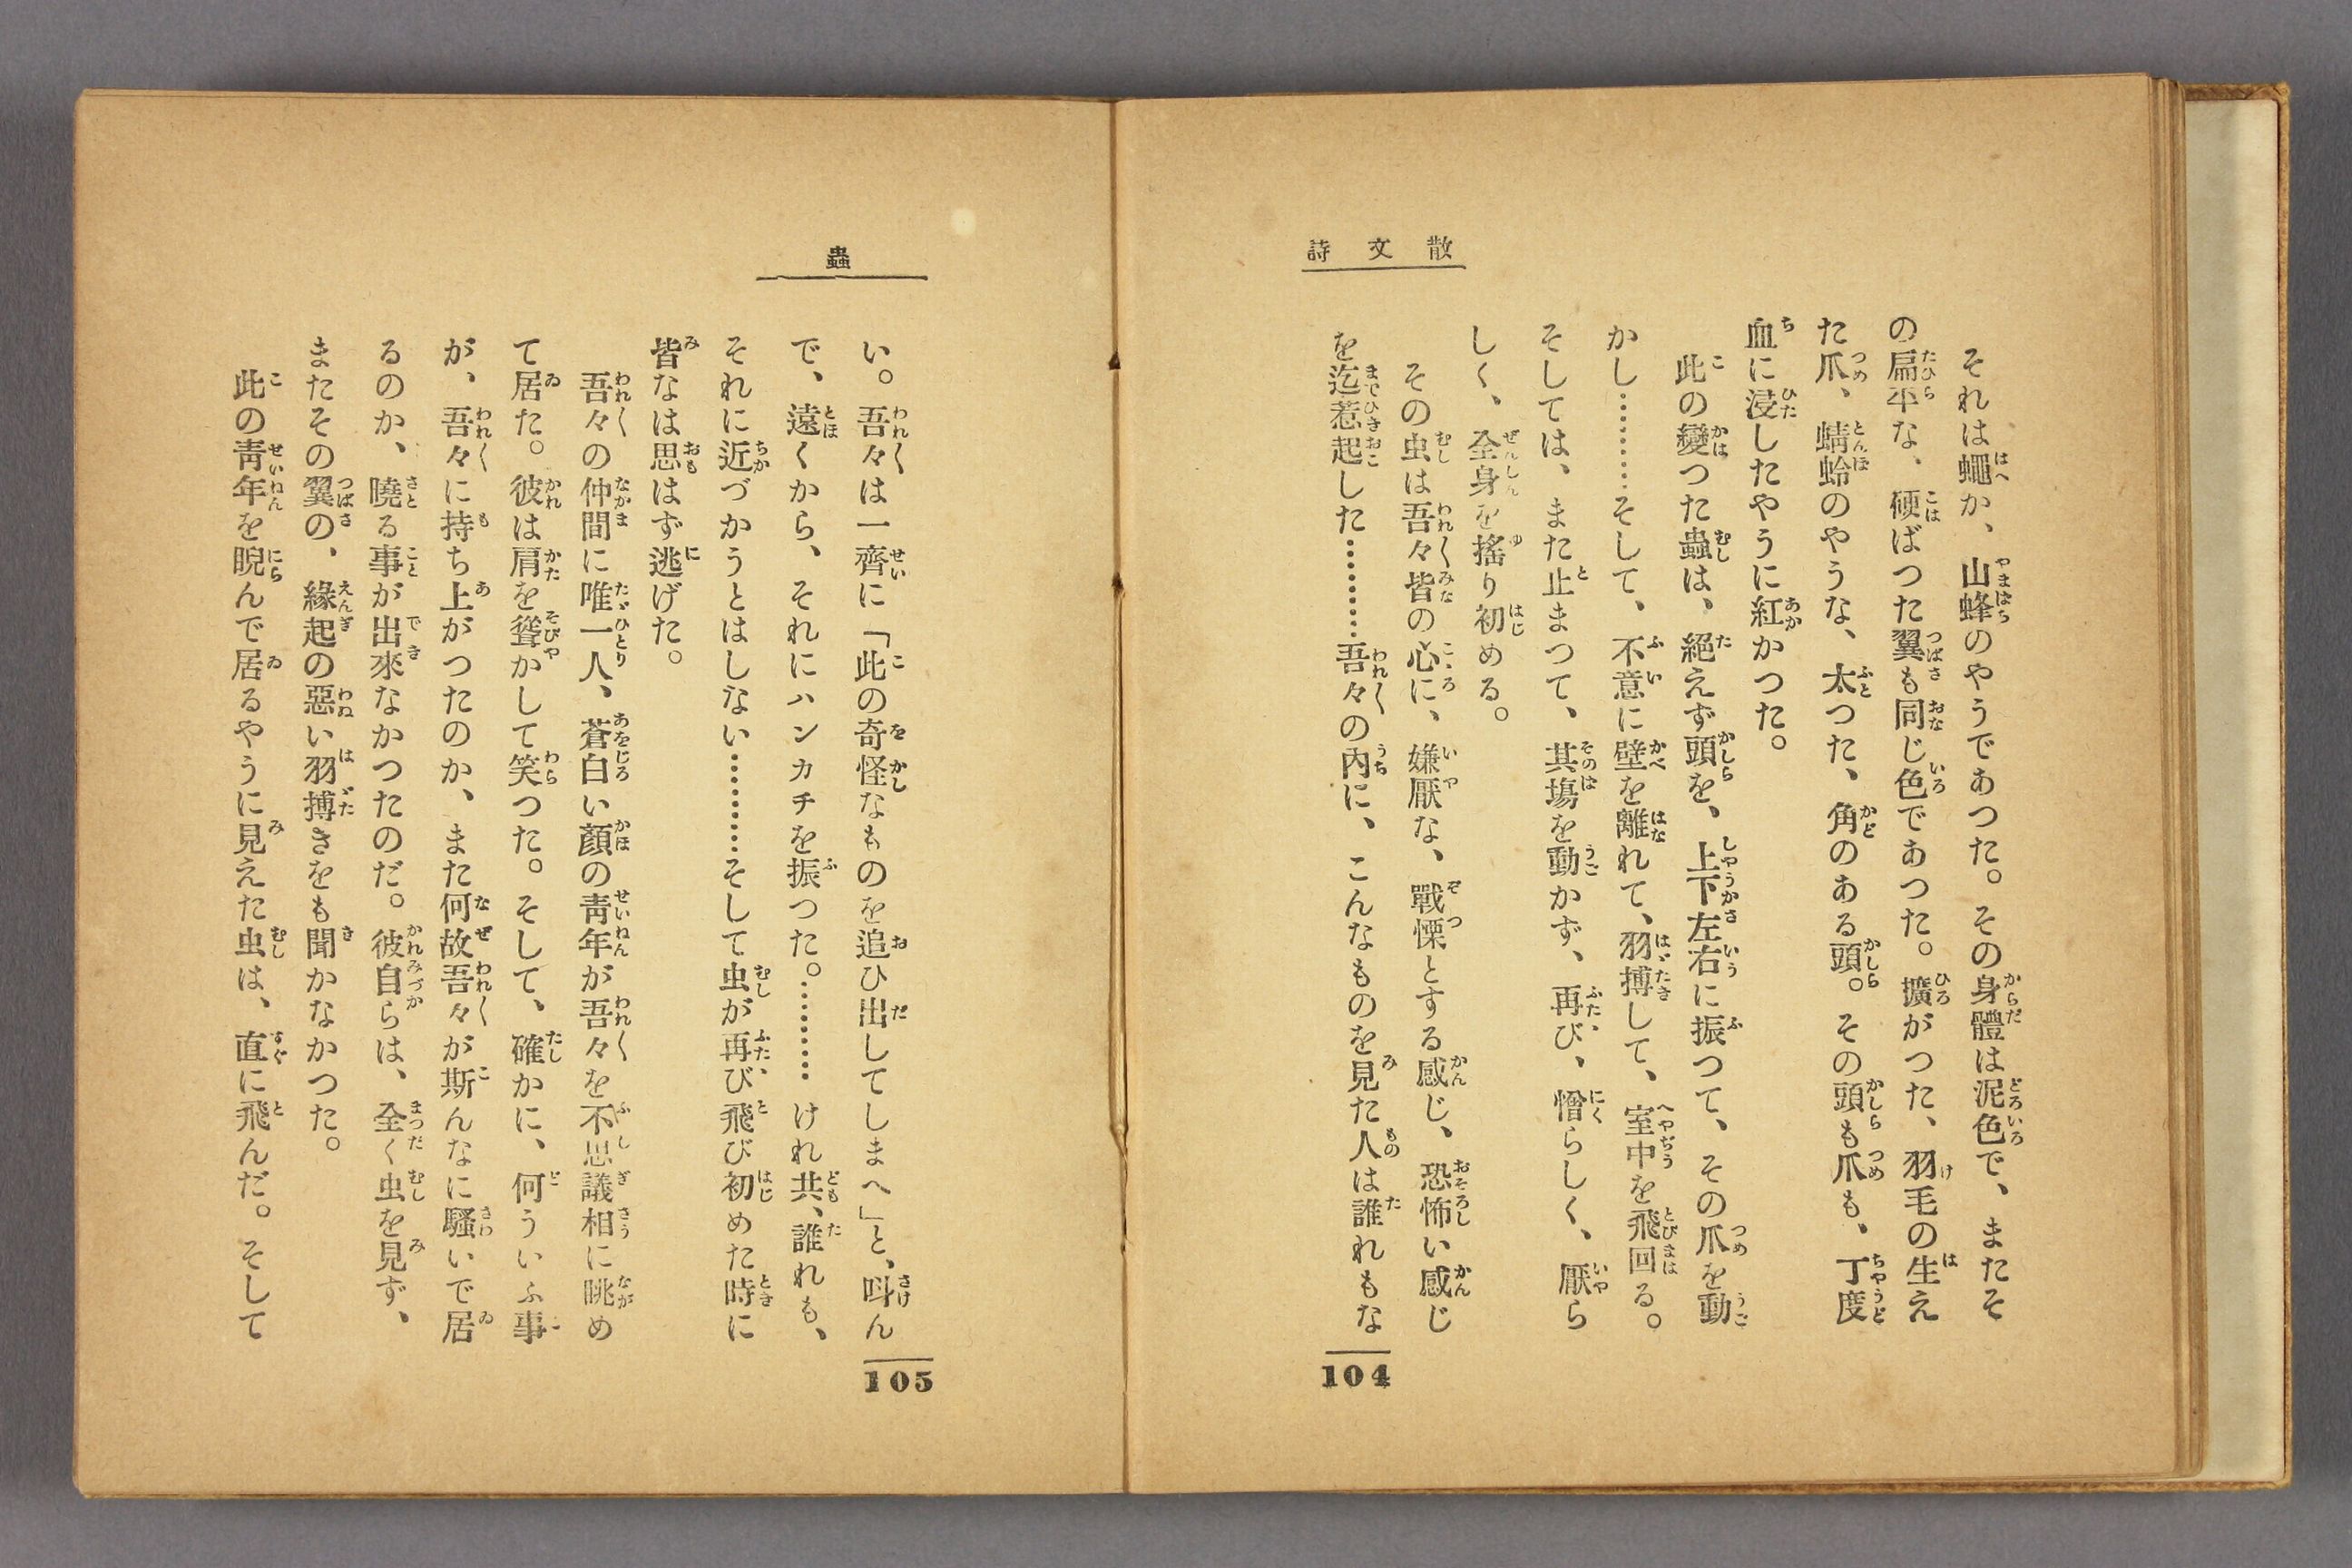 散文詩
それは蠅か、山蜂のやうであつた。その身體は泥色で、またそ
の扁平な、硬ばつた翼も同じ色であつた。擴がつた、羽毛の生え
た爪、蜻蛉のやうな、太つた、角のある頭。その頭も爪も、丁度
血に浸したやうに紅かつた。
此の變つた蟲は、絕えず頭を、上下左右に振つて、その爪を動
かし…………そして、不意に壁を離れて、羽搏して、室中を飛回る。
そしては、また止まつて、其塲を動かず、再び、憎らしく、厭ら
しく、全身を搖り初める。
その虫は吾々皆の心に、嫌厭な、戰慄とする感じ、恐怖い感じ
を迄惹起した…………吾々の內に、こんなものを見た人は誰れもな
104
蟲
い。吾々は一齊に「此の奇怪なものを追ひ出してしまへ」と、叫ん
で、遠くから、それにハンカチを振つた。…………けれ共、誰れも、
それに近づかうとはしない…………そして虫が再び飛び初めた時に
皆なは思はず逃げた。
吾々の仲間に唯一人、蒼白い顏の靑年が吾々を不思議相に眺め
て居た。彼は肩を聳かして笑つた。そして、確かに、何ういふ事
が、吾々に持ち上がつたのか、また何故吾々が斯んなに騷いで居
るのか、曉る事が出來なかつたのだ。彼自らは、全く虫を見ず、
またその翼の、緣起の惡い羽搏きをも聞かなかつた。
此の靑年を睨んで居るやうに見えた虫は、直に飛んだ。そして
105